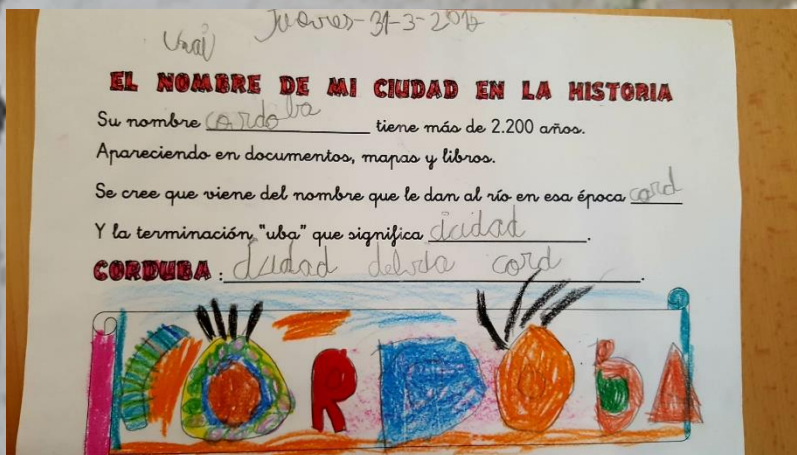 Unai Jueves-31-3-2012
EL NOMBRE DE MI CIUDAD EN LA HISTORIA
Su nombre cordoba tiene más de 2.200 años.
Apareciendo en documentos, mapas y libros.
Se cree que viene del nombre que le dan al río en esa época cord
Y la terminación "uba" que significa ciudad.
CORDUBA: ciudad cord.
CORDOBA